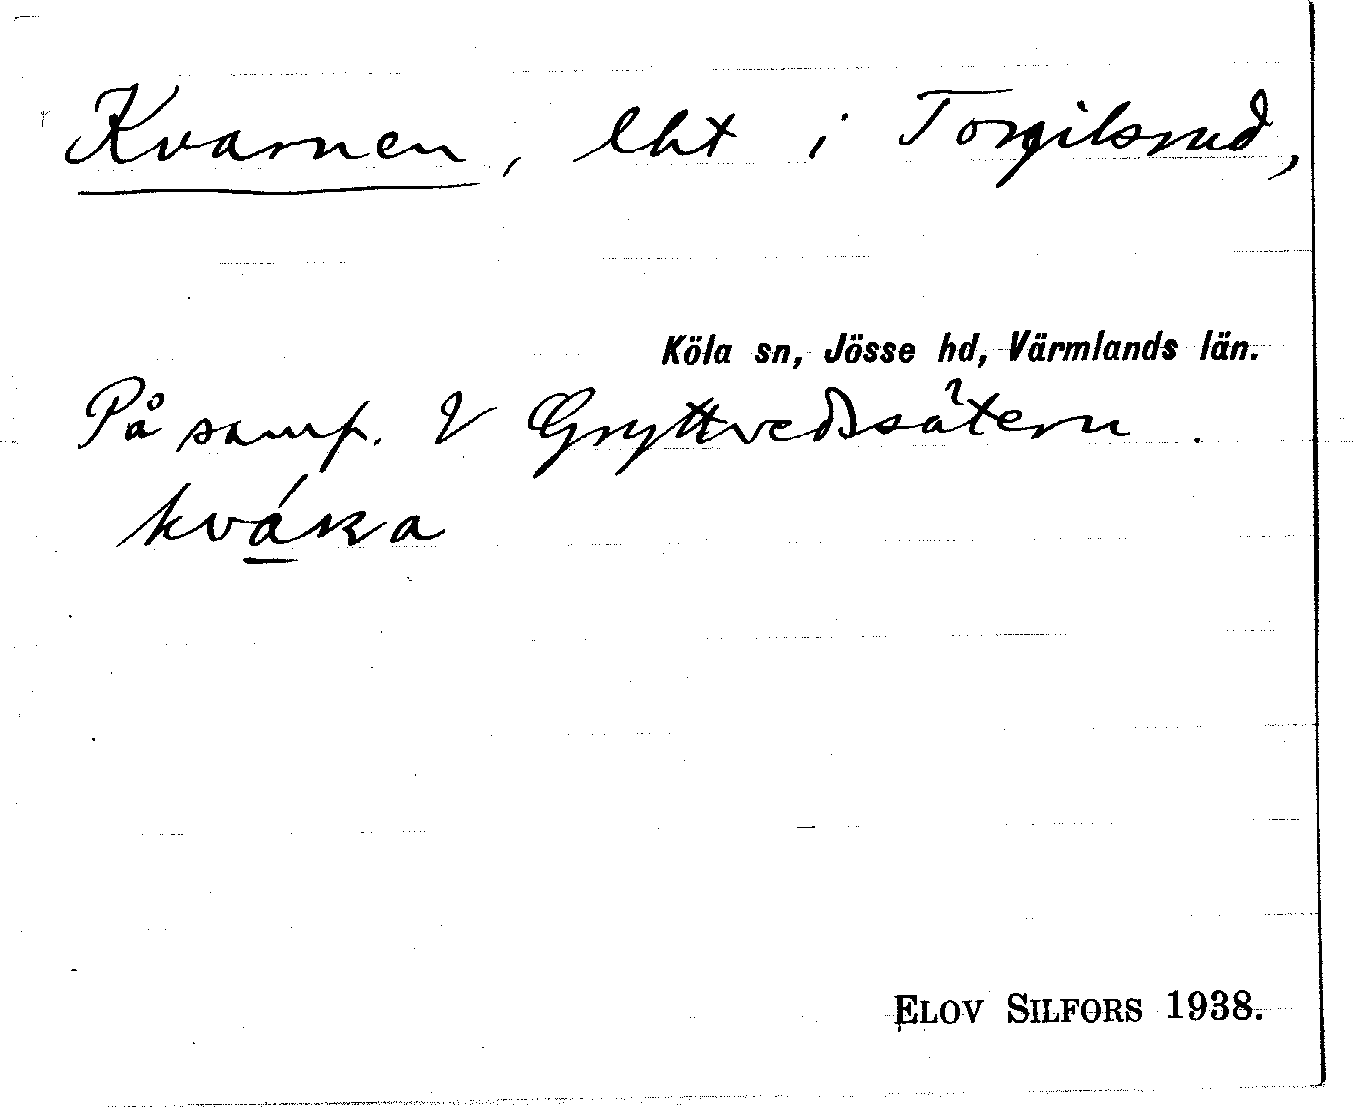 Kvarnen, lht i Torgilsrud,
Köla sn, Jösse hd, Värmlands län.
På samf. V Gryttvedssätern.
kvá̱ṇa
ELOV SILFORS 1938.